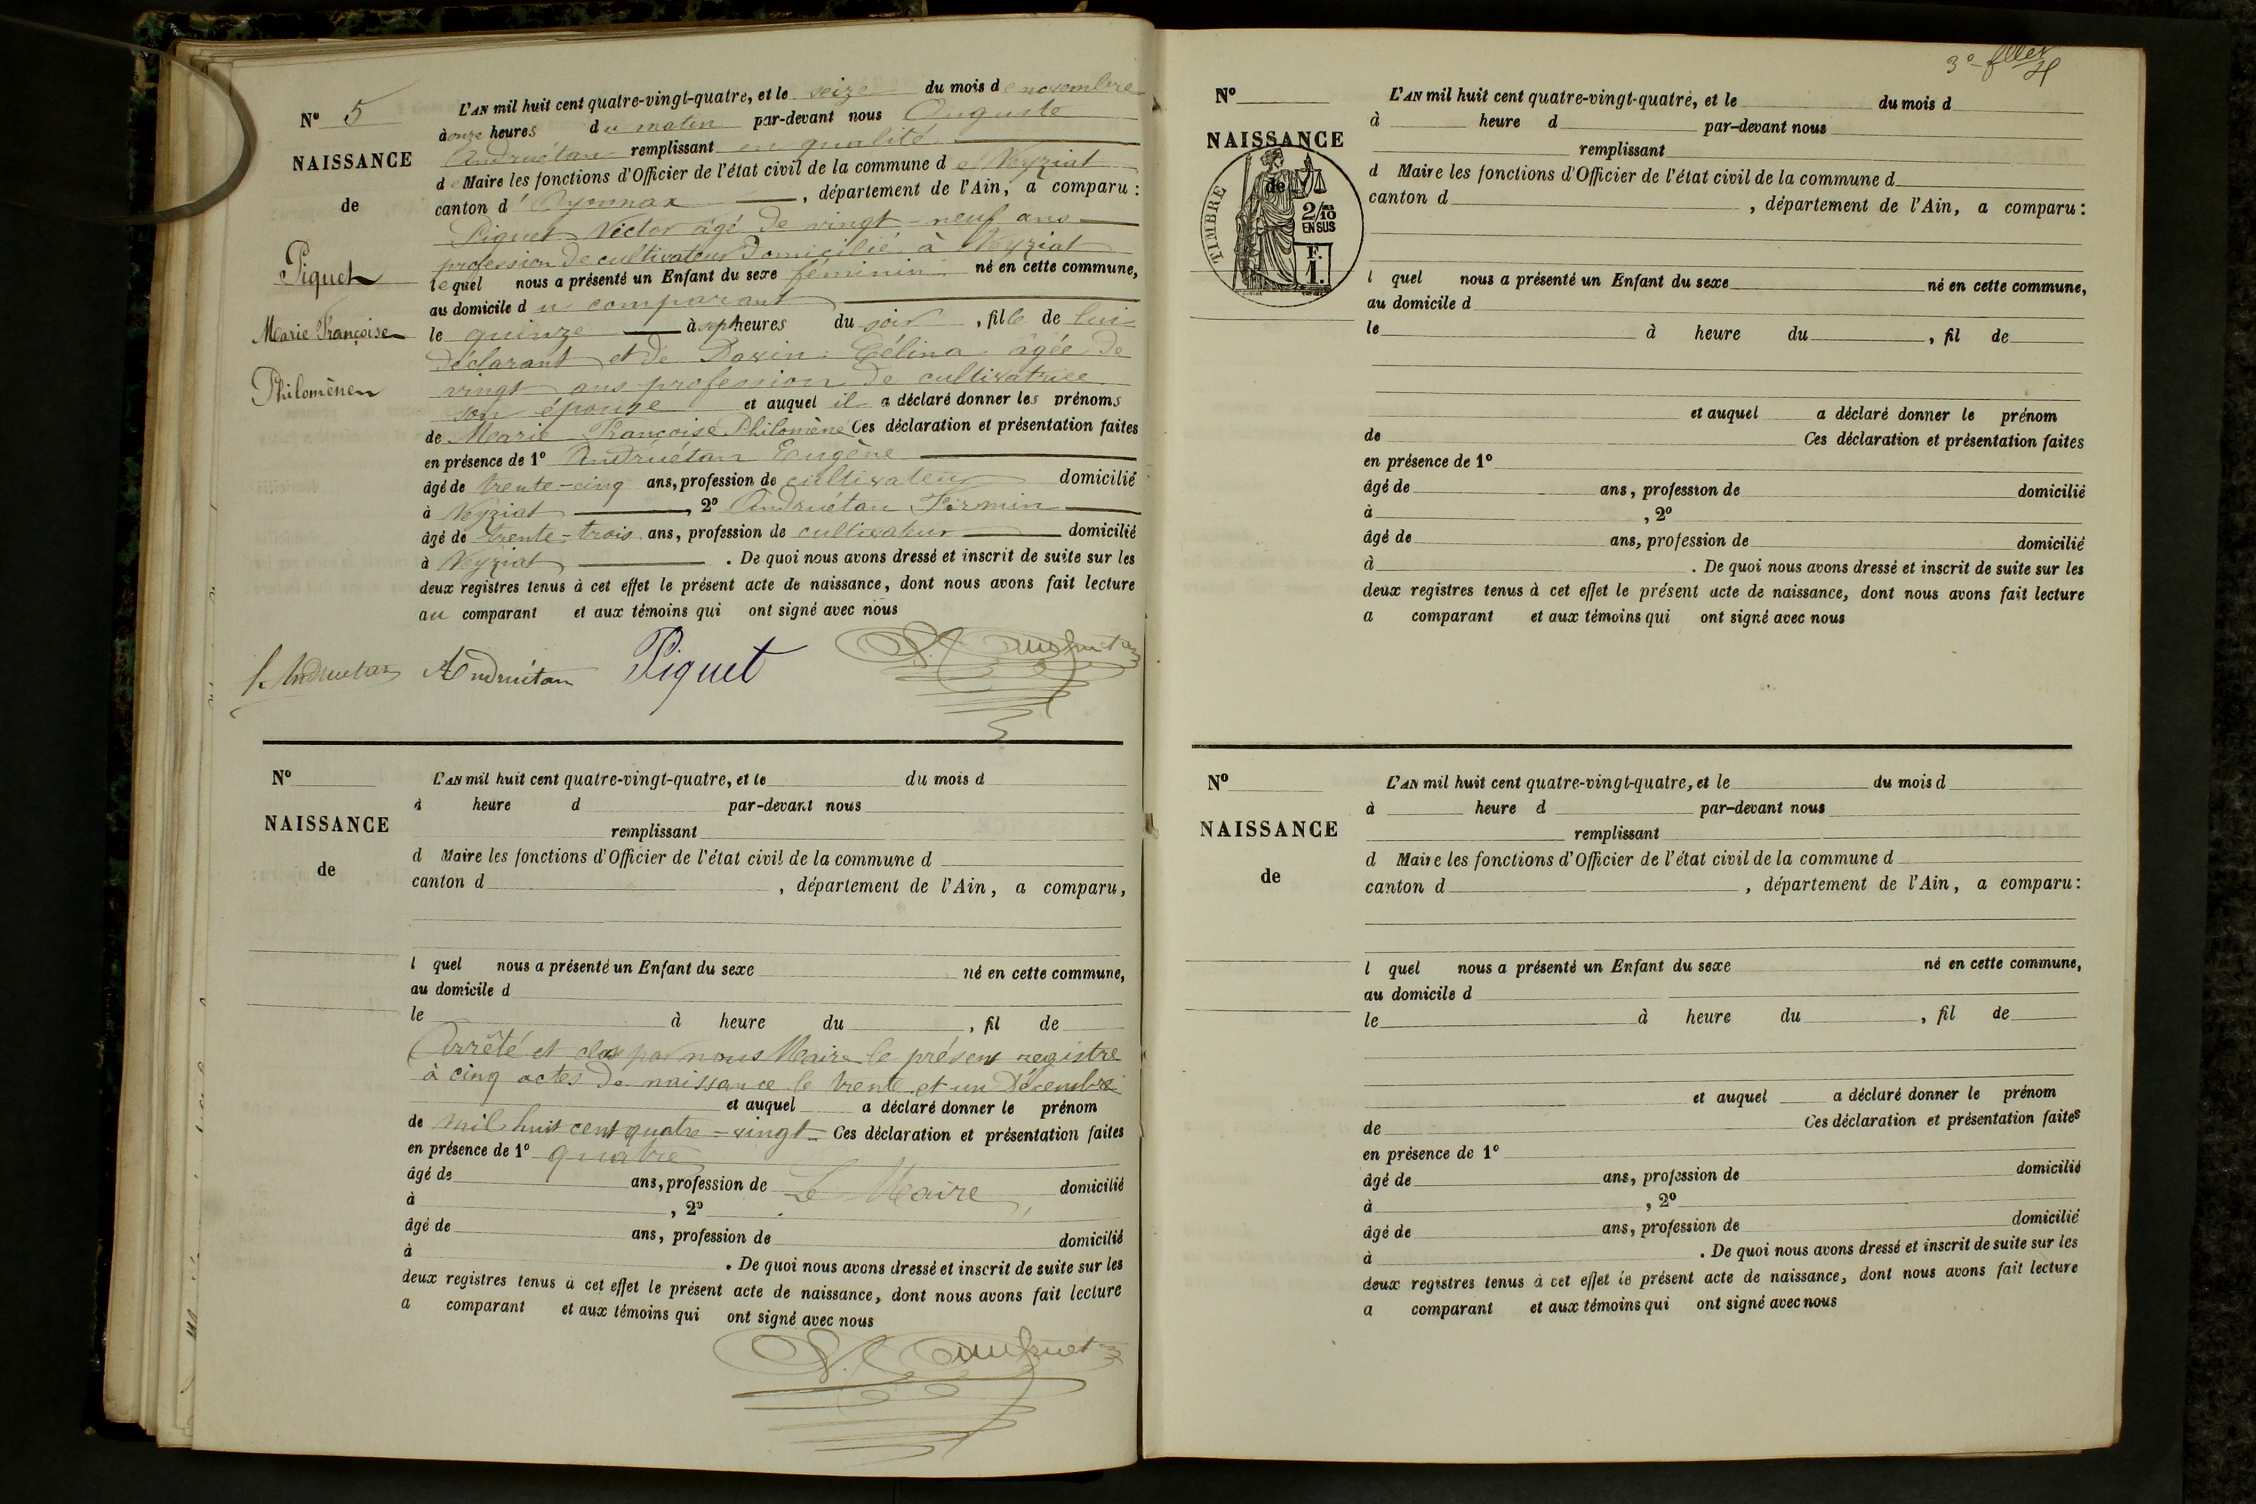 N° 5
NAISSANCE
de
Piquet
Marie Françoise
Philomène
L'AN mil huit cent quatre-vingt-quatre, et le seize du mois de novembre
à onze heures du matin par-devant nous Auguste
Andruétan remplissant en qualité
de Maire les fonctions d'Officier de l'état civil de la commune de Veyziat
canton d'Oyonnax, département de l'Ain, a comparu :
Piquet Victor âgé de vingt-neuf ans
profession de cultivateur domicilié à Veyziat
lequel nous a présenté un Enfant du sexe féminin né en cette commune,
au domicile du comparant
le quinze à sept heures du soir, fille de lui
déclarant et de Célina âgée de
vingt ans profession de cultivatrice
son épouse et auquel il a déclaré donner les prénoms
de Marie Françoise Philomène Ces déclaration et présentation faites
en présence de 1° Andruétan Eugène
âgé de trente-cinq ans, profession de cultivateur domicilié
à Veyziat, 2° Andruétan Firmin
âgé de trente-trois ans, profession de cultivateur domicilié
à Veyziat. De quoi nous avons dressé et inscrit de suite sur les
deux registres tenus à cet effet le présent acte de naissance, dont nous avons fait lecture
au comparant et aux témoins qui ont signé avec nous
f. Andruetan Andruétan Piquet
N°
NAISSANCE
de
L'AN mil huit cent quatre-vingt-quatre, et le du mois d
à heure d par-devant nous
remplissant
d Maire les fonctions d'Officier de l'état civil de la commune d
canton d , département de l'Ain, a comparu,
l quel nous a présenté un Enfant du sexe né en cette commune,
au domicile d
le à heure du , fil de
Arrêté et clos par nous Maire le présent registre
à cinq actes de naissance le trente et un Décembre
et auquel a déclaré donner le prénom
de mil huit cent quatre-vingt- Ces déclaration et présentation faites
en présence de 1° quatre
âgé de ans, profession de Le Maire, domicilié
à , 2°
âgé de ans, profession de domicilié
à . De quoi nous avons dressé et inscrit de suite sur les
deux registres tenus à cet effet le présent acte de naissance, dont nous avons fait lecture
a comparant et aux témoins qui ont signé avec nous
3e
N°
NAISSANCE
de
TIMBRE
2/10 EN SUS
F. 1.
L'AN mil huit cent quatre-vingt-quatre, et le du mois d
à heure d par-devant nous
remplissant
d Maire les fonctions d'Officier de l'état civil de la commune d
canton d , département de l'Ain, a comparu :
l quel nous a présenté un Enfant du sexe né en cette commune,
au domicile d
le à heure du , fil de
et auquel a déclaré donner le prénom
de Ces déclaration et présentation faites
en présence de 1°
âgé de ans, profession de domicilié
à , 2°
âgé de ans, profession de domicilié
à . De quoi nous avons dressé et inscrit de suite sur les
deux registres tenus à cet effet le présent acte de naissance, dont nous avons fait lecture
a comparant et aux témoins qui ont signé avec nous
N°
NAISSANCE
de
L'AN mil huit cent quatre-vingt-quatre, et le du mois d
à heure d par-devant nous
remplissant
d Maire les fonctions d'Officier de l'état civil de la commune d
canton d , département de l'Ain, a comparu :
l quel nous a présenté un Enfant du sexe né en cette commune,
au domicile d
le à heure du , fil de
et auquel a déclaré donner le prénom
de Ces déclaration et présentation faites
en présence de 1°
âgé de ans, profession de domicilié
à , 2°
âgé de ans, profession de domicilié
à . De quoi nous avons dressé et inscrit de suite sur les
deux registres tenus à cet effet le présent acte de naissance, dont nous avons fait lecture
a comparant et aux témoins qui ont signé avec nous